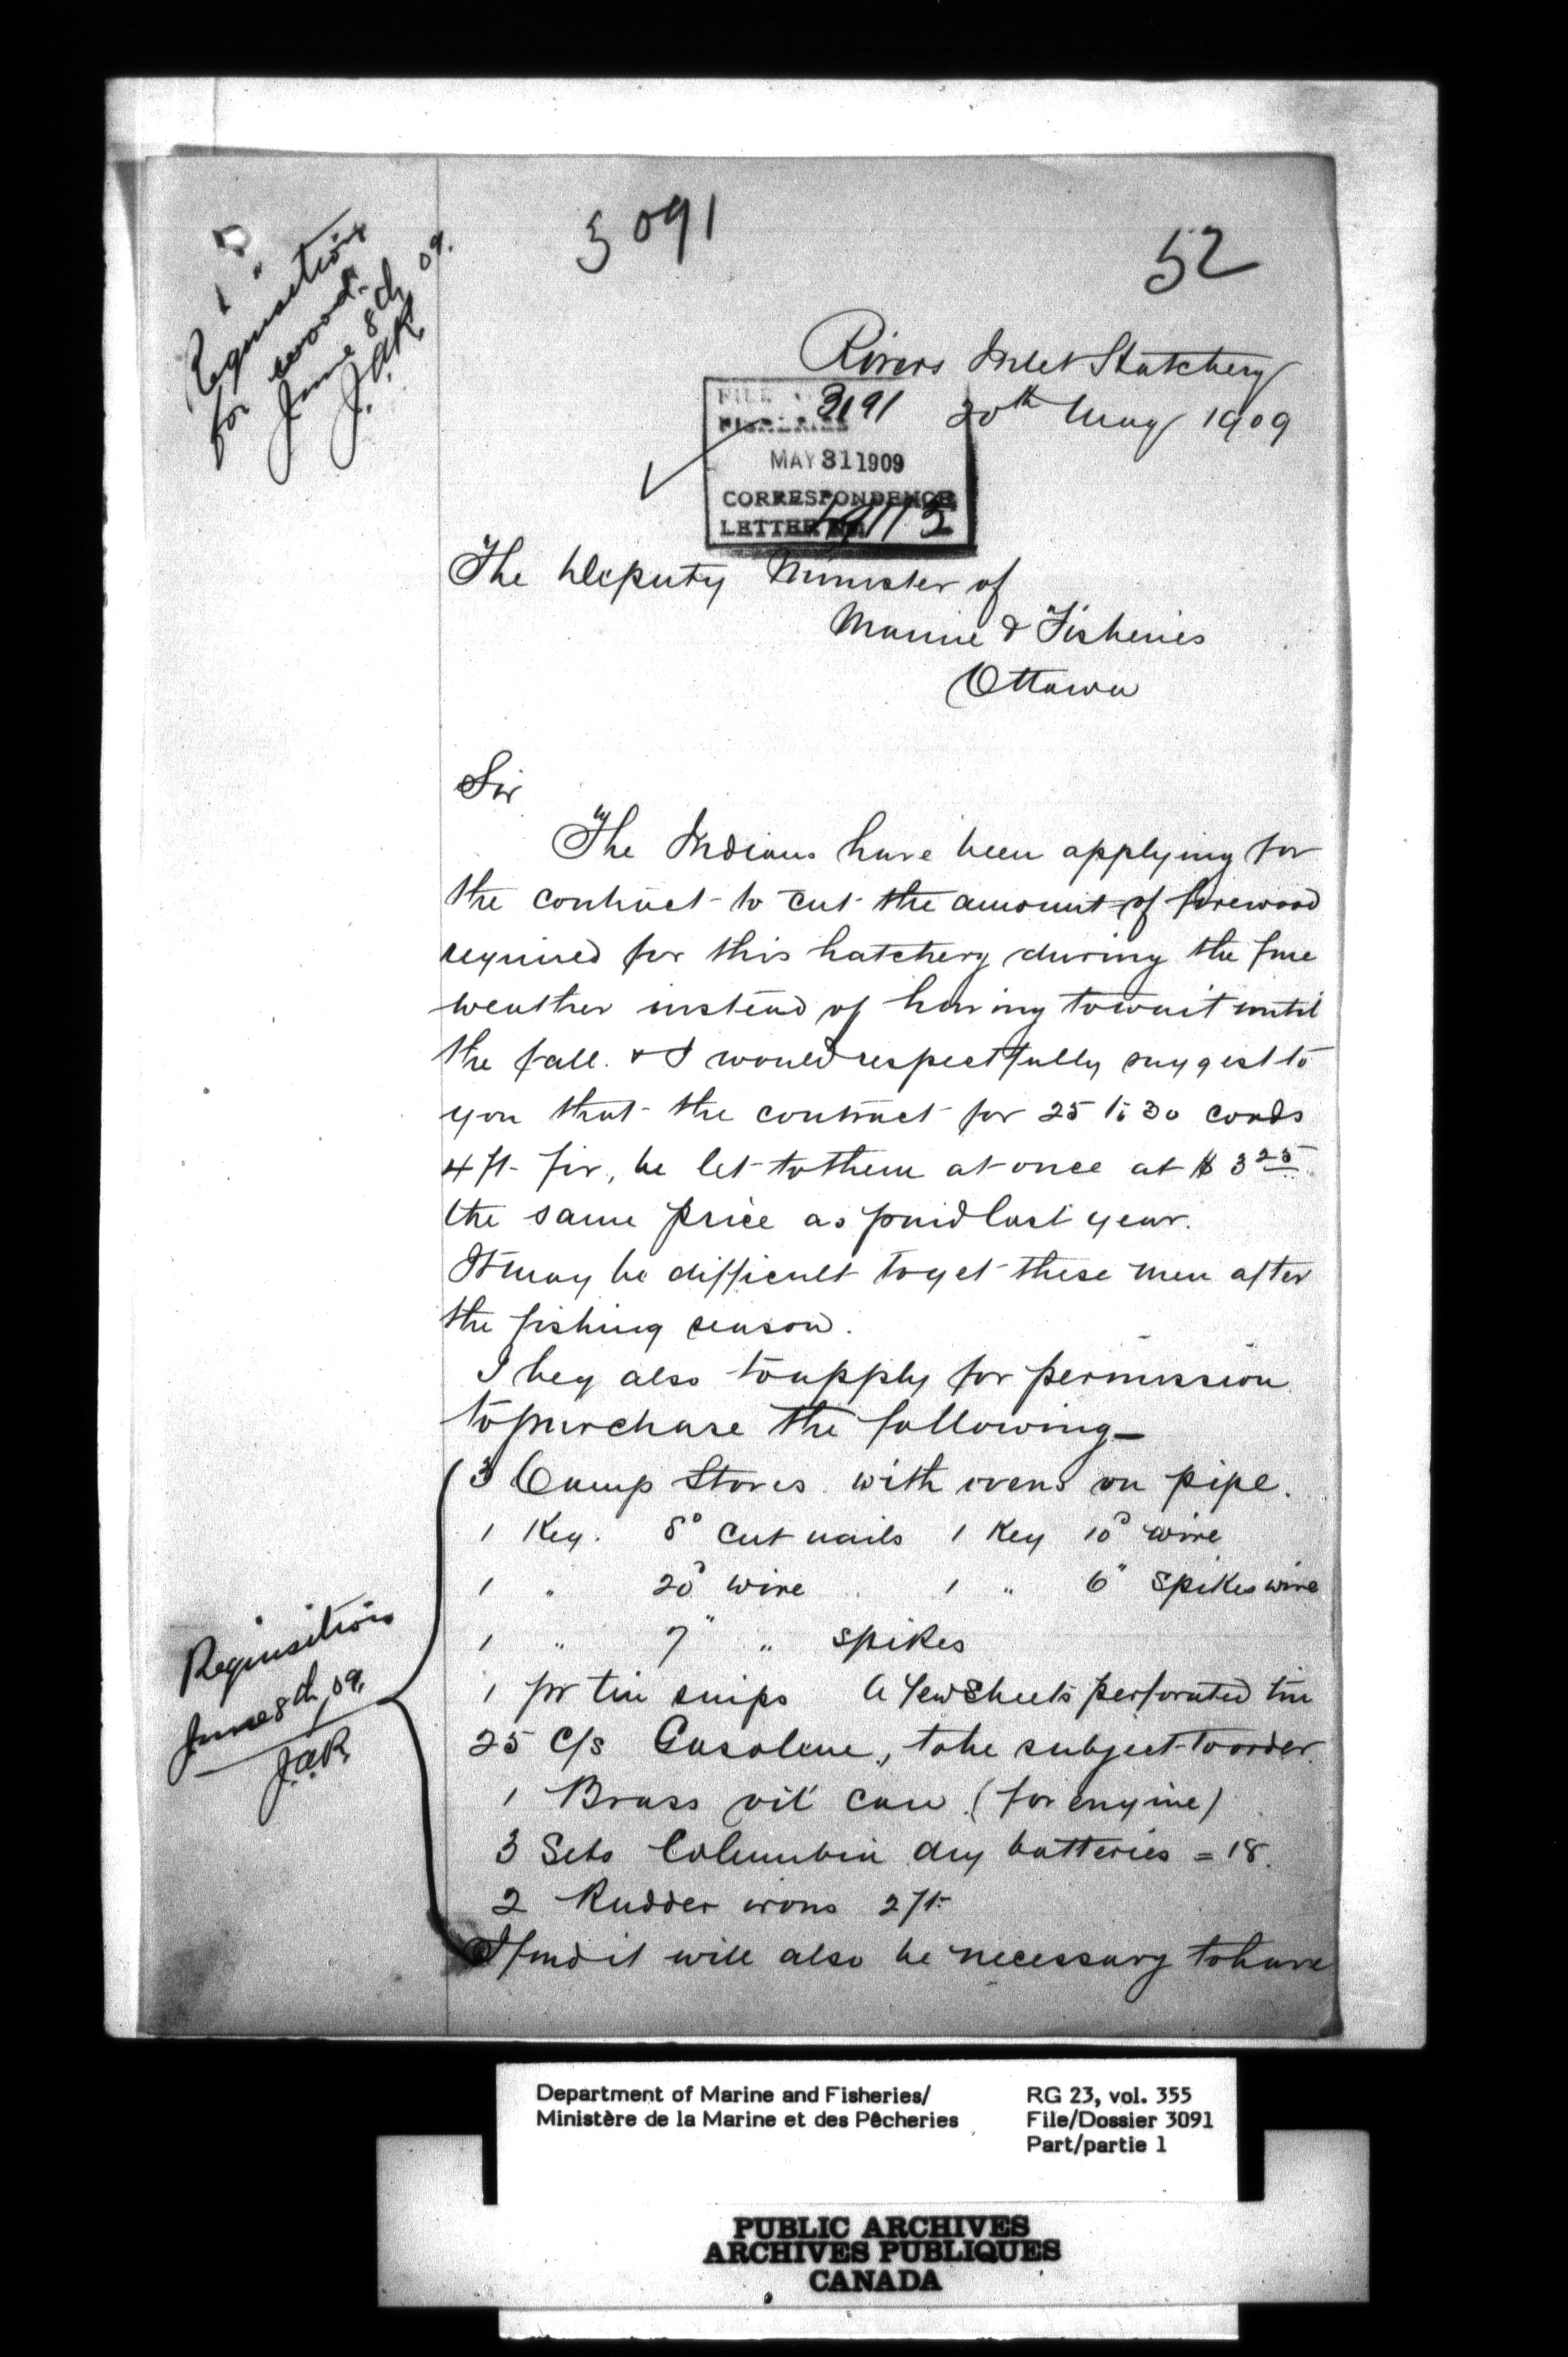 3091
52
Requisition
for wood.
June 8th 09.
J.A.R.
Rivers Inlet Hatchery
20th May 1909
FILE
FISHERIES
3191
MAY 31 1909
CORRESPONDENCE
LETTER No.
The Deputy Minister of
Marine & Fisheries
Ottawa
Sir
The Indians have been applying for
the contract to cut the amount of firewood
required for this hatchery during the fine
weather instead of having to wait until
the fall. & I would respectfully suggest to
you that the contract for 25 to 30 cords
4 ft fir, be let to them at once at $3 25
the same price as paid last year.
It may be difficult to get these men after
the fishing season.
I beg also to apply for permission
to purchase the following—
3 Camp Stoves with ovens on pipe.
1 Keg. 8d cut nails 1 Keg 10d wire
1 " 20d wire 1 " 6" spikes wire
1 " 7" " spikes
1 pr tin snips A few sheets perforated tin
25 c/s Gasolene, to be subject to order.
1 Brass oil can (for engine)
3 Sets Columbia dry batteries = 18.
2 Rudder irons 2 ft
I find it will also be necessary to have
Requisition
June 8th, 09.
J.A.R.
Department of Marine and Fisheries/
Ministère de la Marine et des Pêcheries
RG 23, vol. 355
File/Dossier 3091
Part/partie 1
PUBLIC ARCHIVES
ARCHIVES PUBLIQUES
CANADA